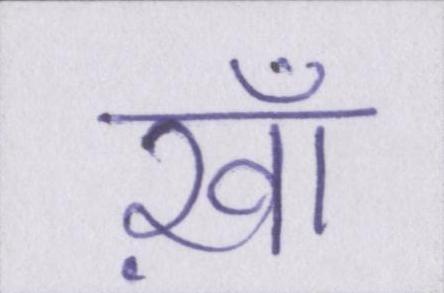 ख़ाँ